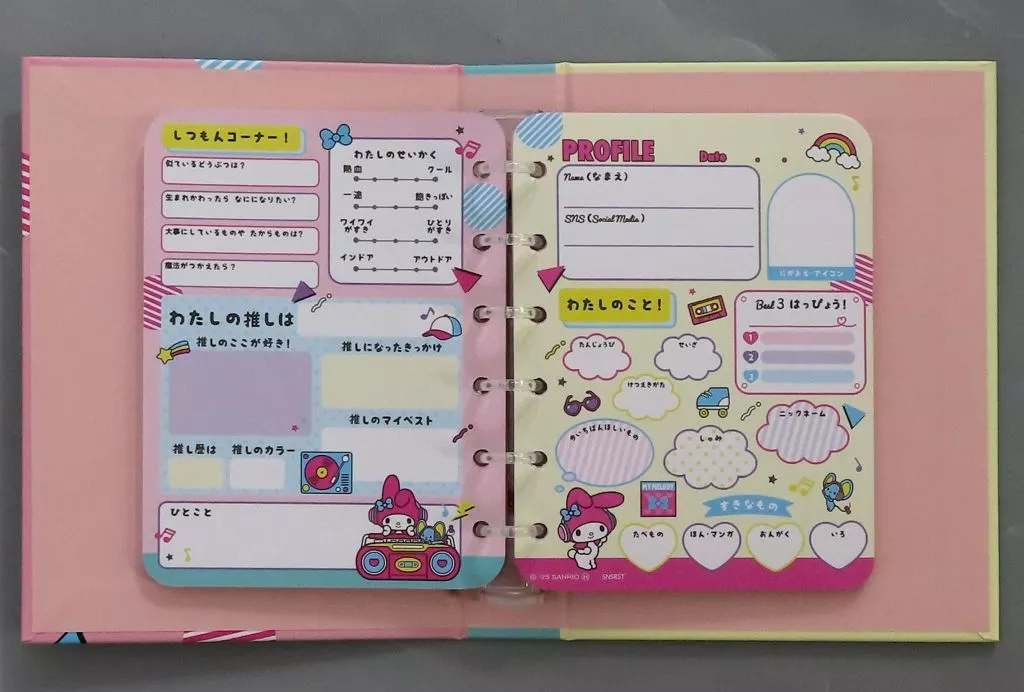 しつもんコーナー！
似ているどうぶつは？
生まれかわったら なにになりたい？
大事にしているものや たからものは？
魔法がつかえたら？
わたしのせいかく
熱血 クール
一途 飽きっぽい
ワイワイがすき ひとりがすき
インドア アウトドア
わたしの推しは
推しのここが好き！
推しになったきっかけ
推しのマイベスト
推し歴は 推しのカラー
ひとこと
PROFILE Date
Name (なまえ)
SNS (Social Media)
にがおえ・アイコン
わたしのこと！
Best 3 はっぴょう！
1
2
3
たんじょうび
せいざ
けつえきがた
ニックネーム
いちばんほしいもの
しゅみ
MY MELODY
すきなもの
たべもの
ほん・マンガ
おんがく
いろ
© '25 SANRIO Ⓗ SNSRST